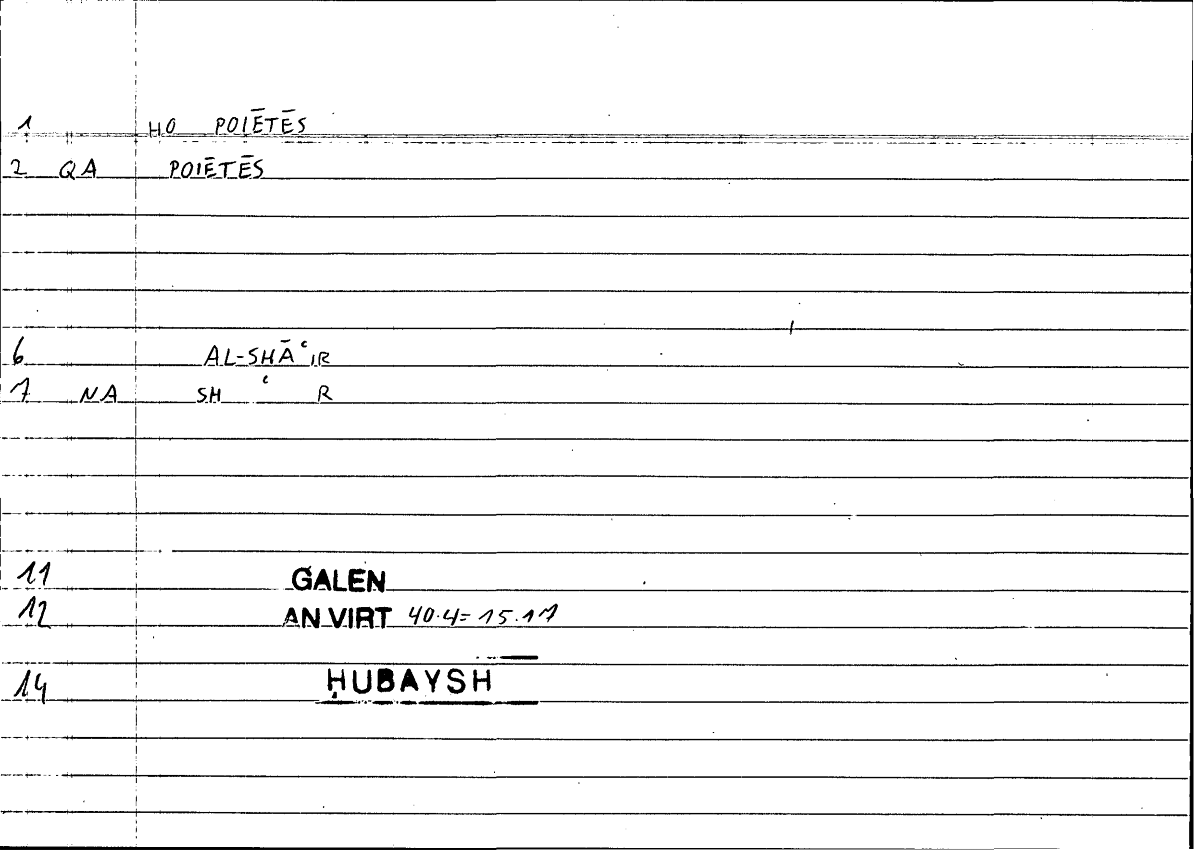 1 HO POIĒTĒS
2 QA POIĒTĒS
6 AL-SHĀʿIR
7 NA SH ʿ R
11 GALEN
12 AN VIRT 40.4=15.17
14 ḤUBAYSH